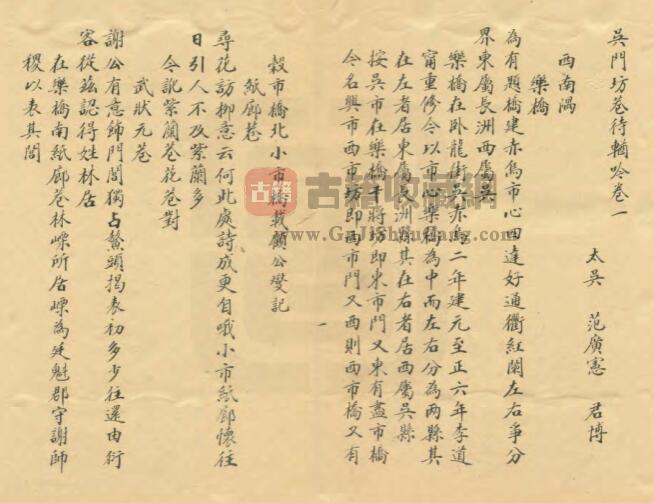 吳門坊巷待輶吟卷一
太吳 范廣憲 君博
西南隅
樂橋
為有題橋建赤烏市心四達好通衢紅闌左右爭分
界東屬長洲西屬吳
樂橋在臥龍街吳赤烏二年建元至正六年李道
甯重修今以市心樂橋為中而左右分為兩縣其
在左者居東屬長洲縣其在右者居西屬吳縣
按吳市在樂橋干將坊即東市門又東有盡市橋
今名興市西市坊即西市門又西則西市橋又有
穀市橋北小市橋載顧公燮記
紙廊巷
尋花訪柳意云何此處詩成更自哦小市紙廊懷往
日引人不及紫蘭多
今訛紫蘭巷花巷對
武狀元巷
謝公有意飾門閭獨占鰲頭揭表初多少往還由衍
客從茲認得姓林居
在樂橋南紙廊巷林嶸所居嶸為廷魁郡守謝師
稷以表其閭
古籍
古籍收藏網
www.GuJiShouCang.com